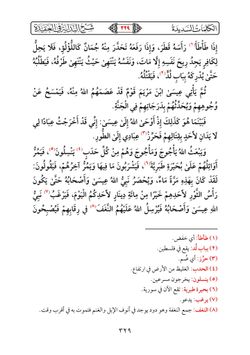 الكلمات السديدة
٣٢٩
شرح البداية في العقيدة
إِذَا طَأْطَأَ(١) رَأْسَهُ قَطَرَ، وَإِذَا رَفَعَهُ تَحَدَّرَ مِنْهُ جُمَانٌ كَاللُّؤْلُؤِ، فَلَا يَحِلُّ
لِكَافِرٍ يَجِدُ رِيحَ نَفَسِهِ إِلَّا مَاتَ، وَنَفَسُهُ يَنْتَهِي حَيْثُ يَنْتَهِي طَرْفُهُ، فَيَطْلُبُهُ
حَتَّى يُدْرِكَهُ بِبَابِ لُدٍّ(٢)، فَيَقْتُلُهُ.
ثُمَّ يَأْتِي عِيسَى ابْنَ مَرْيَمَ قَوْمٌ قَدْ عَصَمَهُمُ اللهُ مِنْهُ، فَيَمْسَحُ عَنْ
وُجُوهِهِمْ وَيُحَدِّثُهُمْ بِدَرَجَاتِهِمْ فِي الْجَنَّةِ.
فَبَيْنَمَا هُوَ كَذَلِكَ إِذْ أَوْحَى اللهُ إِلَى عِيسَى: إِنِّي قَدْ أَخْرَجْتُ عِبَادًا لِي
لَا يَدَانِ لِأَحَدٍ بِقِتَالِهِمْ فَحَرِّزْ(٣) عِبَادِي إِلَى الطُّورِ.
وَيَبْعَثُ اللهُ يَأْجُوجَ وَمَأْجُوجَ وَهُمْ مِنْ كُلِّ حَدَبٍ(٤) يَنْسِلُونَ(٥)، فَيَمُرُّ
أَوَائِلُهُمْ عَلَى بُحَيْرَةِ طَبَرِيَّةَ(٦)، فَيَشْرَبُونَ مَا فِيهَا وَيَمُرُّ آخِرُهُمْ، فَيَقُولُونَ:
لَقَدْ كَانَ بِهَذِهِ مَرَّةً مَاءٌ، وَيُحْصَرُ نَبِيُّ اللهِ عِيسَى وَأَصْحَابُهُ حَتَّى يَكُونَ
رَأْسُ الثَّوْرِ لِأَحَدِهِمْ خَيْرًا مِنْ مِائَةِ دِينَارٍ لِأَحَدِكُمُ الْيَوْمَ، فَيَرْغَبُ(٧) نَبِيُّ
اللهِ عِيسَى وَأَصْحَابُهُ فَيُرْسِلُ اللهُ عَلَيْهِمُ النَّغَفَ(٨) فِي رِقَابِهِمْ فَيُصْبِحُونَ
(١) طأطأ: أي خفض.
(٢) بباب لد: يقع في فلسطين.
(٣) حرّز: أي ضُم.
(٤) الحدب: الغليظ من الأرض في ارتفاع.
(٥) ينسلون: يخرجون مسرعين.
(٦) بحيرة طبرية: تقع الآن في سورية.
(٧) يرغب: يدعو.
(٨) النغف: جمع النغفة وهو دود يوجد في أنوف الإبل والغنم فتموت به في أقرب وقت.
٣٢٩